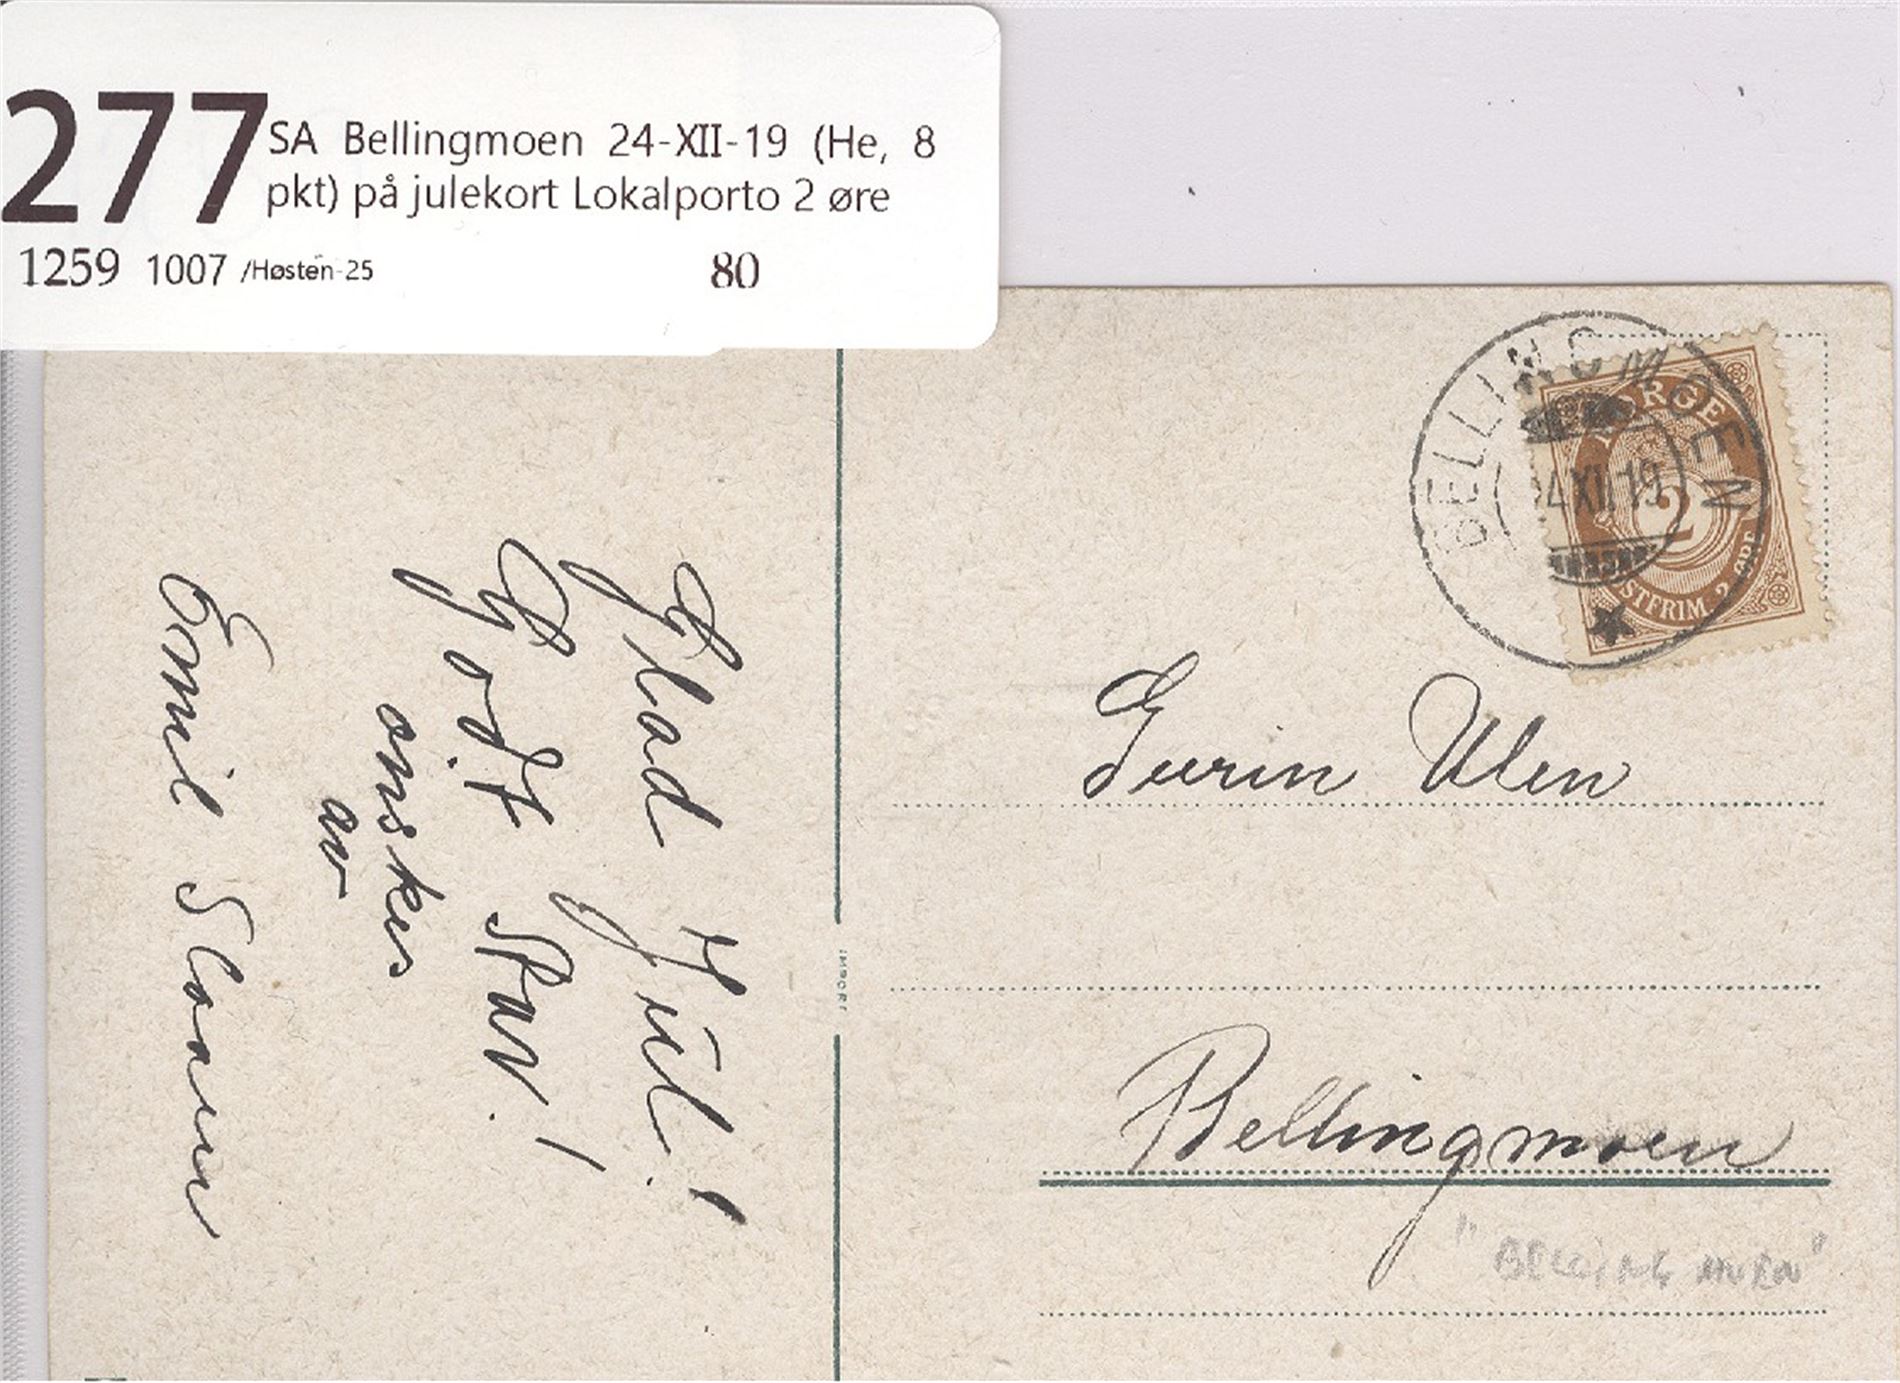 277
SA Bellingmoen 24-XII-19 (He, 8
pkt) på julekort Lokalporto 2 øre
1259 1007 /Høsten-25 80
BELLINGMOEN
24 XII 19
NORGE
2
POSTFRIM. 2 ØRE
Glad Jul!
Godt
ønskes
av
Emil
Gurin Ulen
IMPORT
Bellingmoen
"BELLINGMOEN"